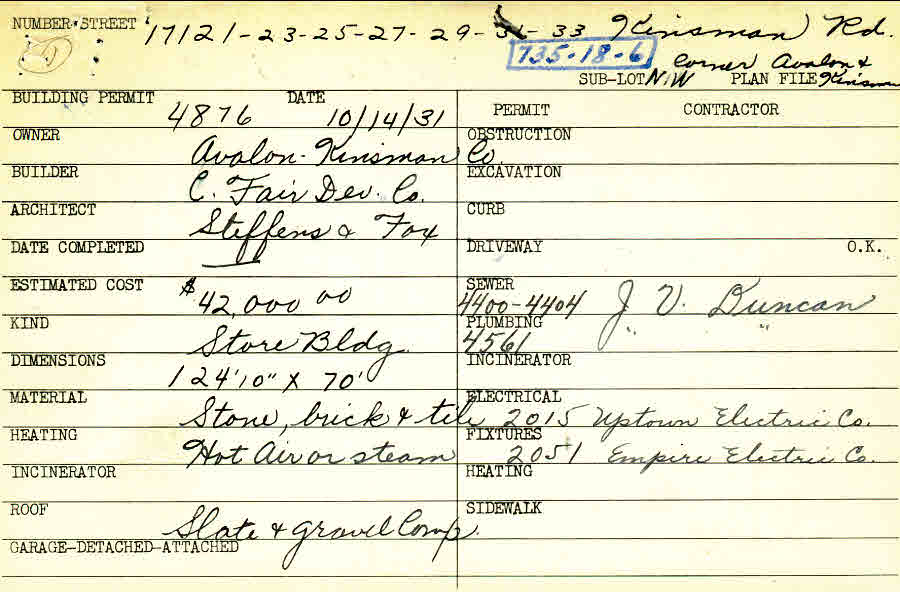 NUMBER-STREET 17121-23-25-27-29-31-33 Kinsman Rd.
1
735-18-6
corner Avalon &
SUB-LOT N.W PLAN FILE Kinsman
BUILDING PERMIT 4876 DATE 10/14/31
PERMIT CONTRACTOR
OWNER Avalon-Kinsman Co.
OBSTRUCTION
BUILDER C. Fair Dev. Co.
EXCAVATION
ARCHITECT Steffens & Fox
CURB
DATE COMPLETED
DRIVEWAY O.K.
ESTIMATED COST $42,000 00
SEWER 4400-4404 J. V. Duncan
KIND Store Bldg.
PLUMBING 4561 " "
DIMENSIONS 124'10" X 70'
INCINERATOR
MATERIAL Stone, brick & tile
ELECTRICAL 2015 Uptown Electric Co.
HEATING Hot Air or steam
FIXTURES 2051 Empire Electric Co.
INCINERATOR
HEATING
ROOF Slate & gravel Comp.
SIDEWALK
GARAGE-DETACHED-ATTACHED